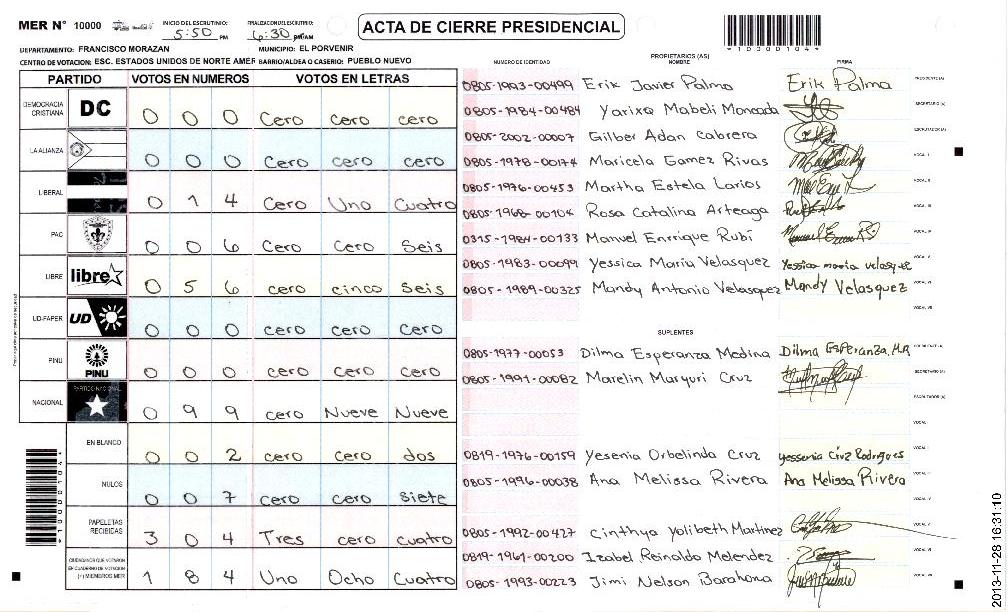 MER N° 10000
INICIO DEL ESCRUTINIO: 5:50 PM
FINALIZACION DEL ESCRUTINIO: 6:30 PM/AM
ACTA DE CIERRE PRESIDENCIAL
*10000104*
DEPARTAMENTO: FRANCISCO MORAZAN MUNICIPIO: EL PORVENIR
CENTRO DE VOTACION: ESC. ESTADOS UNIDOS DE NORTE AMER BARRIO/ALDEA O CASERIO: PUEBLO NUEVO
PARTIDO VOTOS EN NUMEROS VOTOS EN LETRAS
DEMOCRACIA CRISTIANA DC 0 0 0 Cero cero cero
LA ALIANZA 0 0 0 Cero cero cero
LIBERAL 0 1 4 Cero Uno Cuatro
PAC 0 0 6 Cero Cero Seis
LIBRE libre 0 5 6 cero cinco Seis
UD-FAPER UD 0 0 0 Cero Cero Cero
PINU PINU 0 0 0 Cero Cero Cero
NACIONAL PARTIDO NACIONAL 0 9 9 cero Nueve Nueve
EN BLANCO 0 0 2 cero cero dos
NULOS 0 0 7 cero cero siete
PAPELETAS RECIBIDAS 3 0 4 Tres cero cuatro
CIUDADANOS QUE VOTARON EN CUADERNO DE VOTACION (+) MIEMBROS MER 1 8 4 Uno Ocho Cuatro
*10000104*
PROPIETARIOS (AS)
NUMERO DE IDENTIDAD NOMBRE FIRMA
0805-1993-00499 Erik Javier Palma Erik Palma PRESIDENTE (A)
0805-1984-00484 Yarixa Mabeli Moncada SECRETARIO (A)
0805-2002-00007 Gilber Adan Cabrera ESCRUTADOR (A)
0805-1978-00174 Maricela Gamez Rivas VOCAL I
0805-1976-00453 Martha Estela Larios VOCAL II
0805-1968-00104 Rosa Catalina Arteaga VOCAL III
0315-1984-00133 Manuel Enrrique Rubí VOCAL IV
0805-1983-00099 Yessica Maria Velasquez Yessica maria velasquez VOCAL V
0805-1989-00325 Mandy Antonio Velasquez Mandy Velasquez VOCAL VI
VOCAL VII
SUPLENTES
0805-1977-00053 Dilma Esperanza Medina Dilma Esperanza.
0805-1991-00082 Marelin Maryuri Cruz SECRETARIO (A)
ESCRUTADOR (A)
VOCAL
0819-1976-00159 Yesenia Orbelinda Cruz yessenia Cruz Rodrigues VOCAL
0805-1996-00038 Ana Melissa Rivera Ana Melissa Rivera VOCAL
VOCAL IV
0805-1992-00427 Cinthya Yolibeth Martinez VOCAL V
0819-1961-00200 Izabel Reinaldo Melendez VOCAL VI
0805-1993-00223 Jimi Nelson Barahona VOCAL VII
2013-11-28 16:31:10